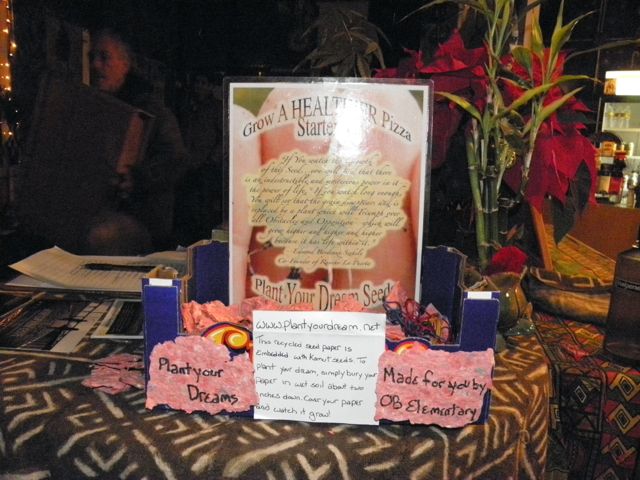 Grow A HEALTHIER Pizza
Starter
"If You watch the growth
of this Seed... you will see that there
is an indestructible and mysterious power in it
the power of life." If you watch long enough,
You will see that the grain disappears and is
replaced by a plant which will Triumph over
all Obstacles and Opposition which will
grow higher and higher and higher
because it has life within it."
Co-Founder of
Plant Your Dream Seeds
www.plantyourdream.net
This recycled seed paper is
Embedded with Kamut seeds. To
plant your dream, simply bury your
paper in wet soil about two
inches down. Cover your paper
and watch it grow!
Plant your
Dreams
Made for you by
OB Elementary